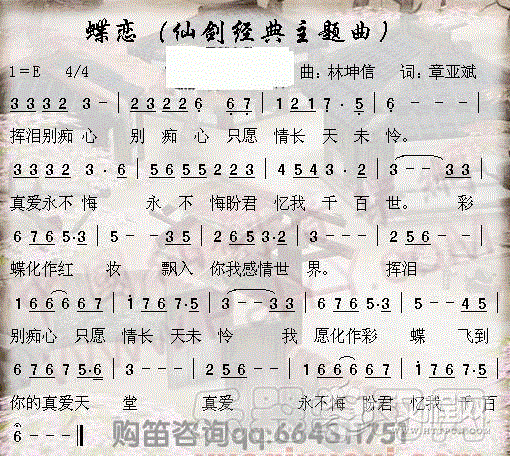 蝶恋（仙剑经典主题曲）
1=E 4/4 曲：林坤信 词：章亚斌
3 3 3 2 3 - | 2 3 2 2 6 6 7 | 1 2 1 7 6 7 · 5 | 6 - - - |
挥泪别痴 心 别 痴 心 只愿 情长 天 未 怜。
3 3 3 2 3 · 6 | 5 6 5 5 2 2 3 | 4 5 4 3 · 2 | 3 - - 3 3 |
真爱永不 悔 永 不 悔盼君 忆我 千 百 世。 彩
6 7 6 5 · 3 | 5 - - 3 5 | 2 6 5 3 · 2 | 3 - - 6 |
蝶化作红 妆 飘入 你我感情世 界。 挥泪
1 6 6 6 6 7 | 1 7 6 7 · 5 | 3 - - 3 3 | 1 6 6 6 6 7 | 1 7 6 7 · 5 | 5 - - 4 5 |
别痴心 只愿 情长 天未 怜 我 愿化作彩 蝶 飞到
6 7 6 7 5 · 6 | 3 - - - | 2 5 6 - - | 3 - - - | 1 6 6 6 6 7 | 1 7 6 7 · 5 |
你的真爱天 堂 真爱 永不悔 盼君 忆我 千百
6 - - - ‖
购笛咨询qq:664311751